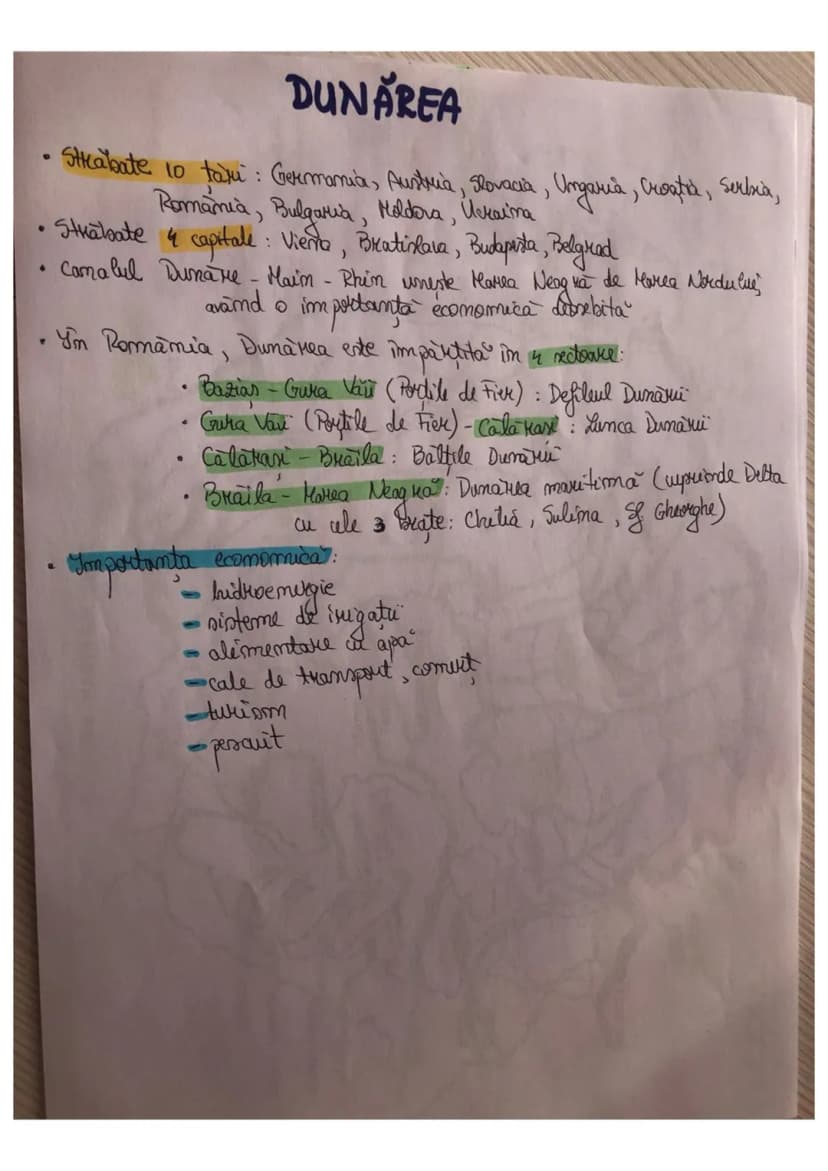 DUNĂREA
• Străbate 10 țări : Germania, Austria, Slovacia, Ungaria, Croația, Serbia,
România, Bulgaria, Moldova, Ucraina
• Străbate 4 capitale : Viena, Bratislava, Budapesta, Belgrad
• Canalul Dunăre - Main - Rhin unește Marea Neagră de Marea Nordului,
având o importanță economică deosebită
• În România, Dunărea este împărțită în 4 sectoare:
• Baziaș - Gura Văii (Porțile de Fier) : Defileul Dunării
• Gura Văii (Porțile de Fier) - Călărași : Lunca Dunării
• Călărași - Brăila : Bălțile Dunării
• Brăila - Marea Neagră : Dunărea maritimă (cuprinde Delta
cu cele 3 brațe: Chilia, Sulina, Sf Gheorghe)
• Importanța economică:
- hidroenergie
- sisteme de irigații
- alimentare cu apă
- cale de transport, comerț
- turism
- pescuit